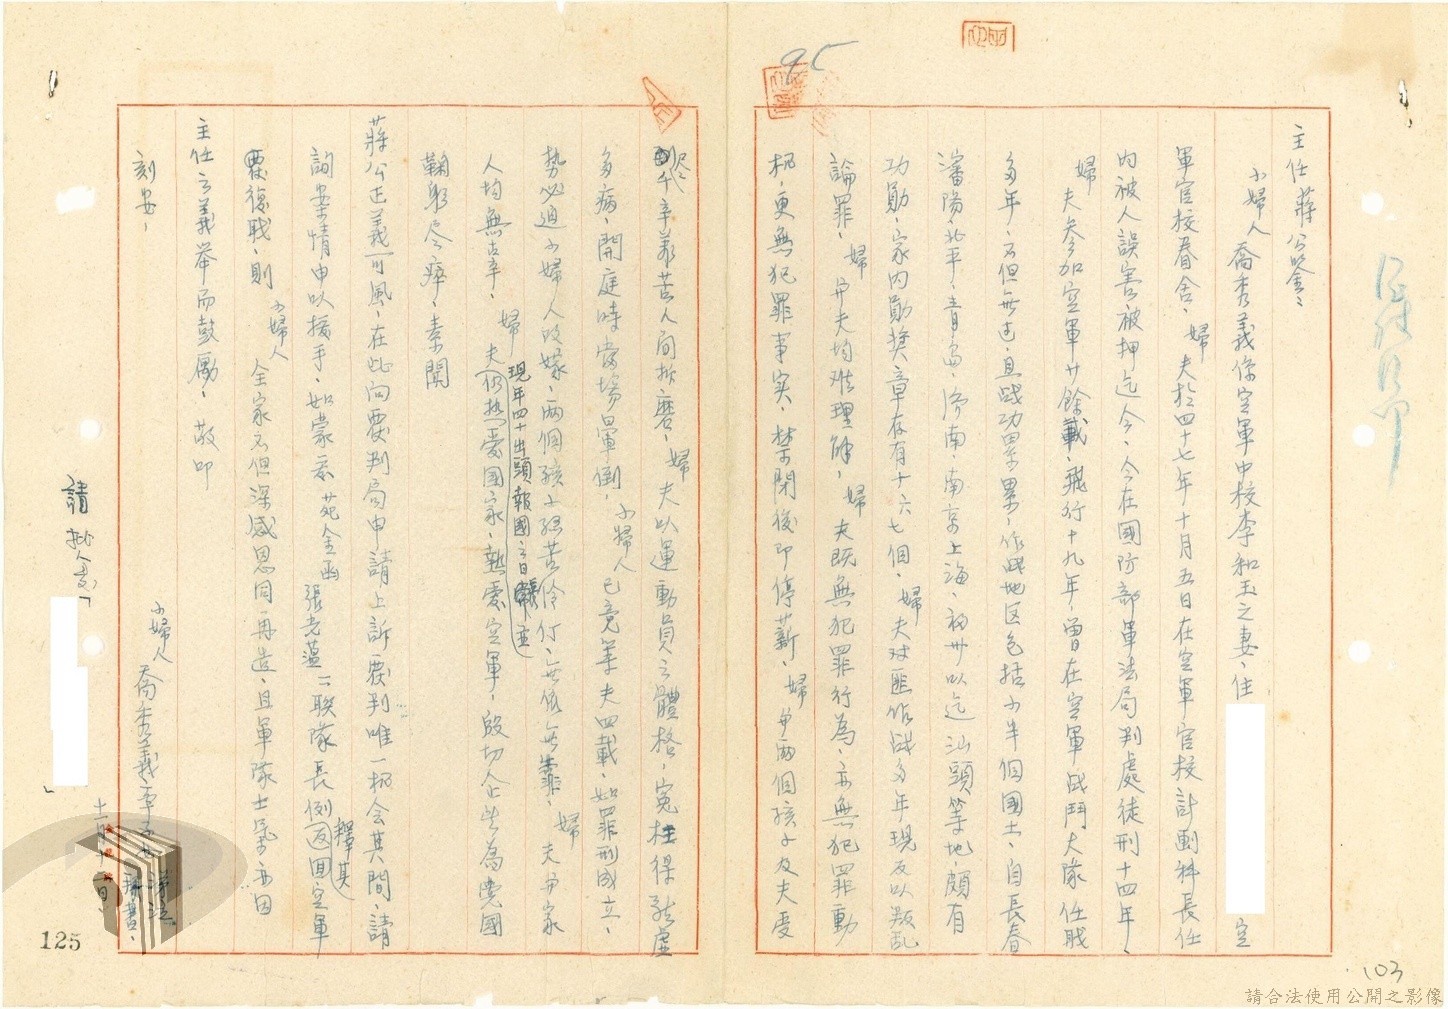 主任蔣公鑒、
小婦人喬秀義係空軍中校李和玉之妻、住 空
軍官校眷舍、婦夫於四十七年十月五日在空軍官校計劃科長任
內被人誤害、被押迄今、今在國防部軍法局判處徒刑十四年、
婦夫參加空軍廿餘載、飛行十九年、曾在空軍战鬥大隊任職
多年、不但無过、且战功累累、作戰地区包括小半個國土、自長春
瀋陽北平、青島、濟南、南京上海、福州以迄汕頭等地、頗有
功勛、家內勛獎章存有十六七個、婦夫对匪作战多年現反以叛乱
論罪、婦與夫均难理解、婦夫既無犯罪行為、亦無犯罪動
机、更無犯罪事实、禁閉後即停薪、婦與兩個孩子及夫受
盡千辛萬苦人间折磨、婦夫以運動員之體格、冤枉得致虛
多病、開庭時當場暈倒、小婦人已竟等夫四載、如罪刑成立、
勢必迫小婦人改嫁、兩個孩子孤苦伶仃、無依無靠、婦夫與家
人均無古辛、婦夫仍热愛國家、熱愛空軍、
現年四十出頭報國之日
殷切企望為党國
鞠躬尽瘁、素聞
蔣公正義可風、在此向覆判局申請上訴覆判唯一机会其間、請
詢案情申以援手、如蒙委苑金函張光蕴二聯隊長例釋其返回空軍
覆復職、則小婦人全家不但深感恩同再造、且軍隊士氣亦因
主任之義举而鼓勵、敬叩
刻安、
小婦人喬秀義
十一月十一日
請批人
95
125
103
請合法使用公開之影像